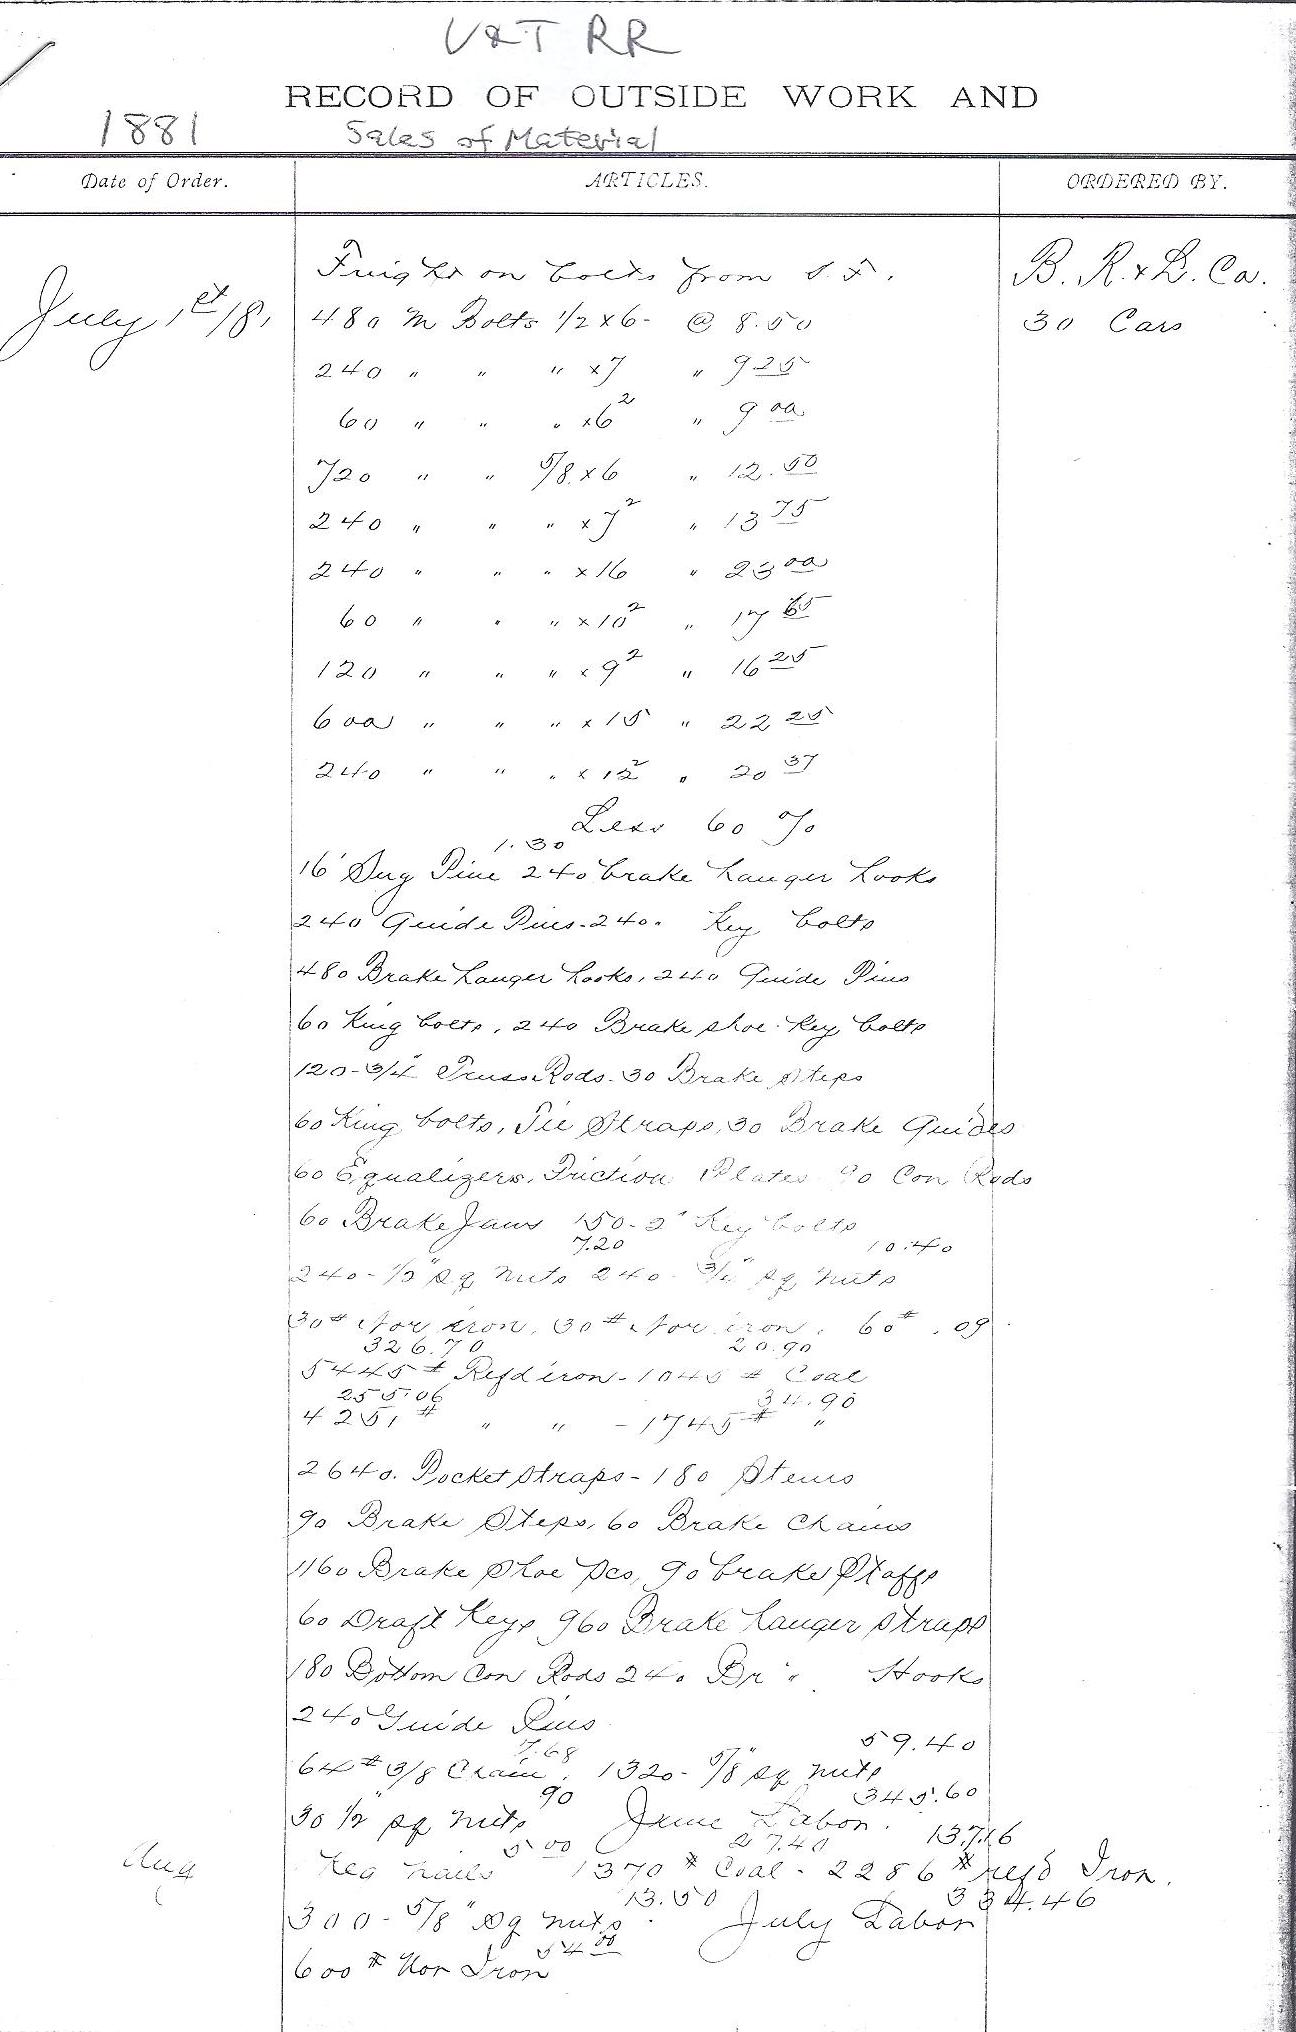 V&T RR
RECORD OF OUTSIDE WORK AND
1881 Sales of Material
Date of Order. ARTICLES. ORDERED BY.
Freight on bolts from S. F. B. R. & L. Co.
July 1st/81 480 M Bolts 1/2 x 6 - @ 8.50 30 Cars
240 " " " x 7 " 9 25
60 " " " x 6 2 " 9 00
720 " " 5/8 x 6 " 12.50
240 " " " x 7 2 " 13 75
240 " " " x 16 " 23 00
60 " " " x 10 2 " 17 65
120 " " " x 9 2 " 16 25
600 " " " x 15 " 22 25
240 " " " x 12 2 " 20 37
Less 60 %
1.30
16' Sug Pine 240 brake hanger hooks
240 Guide Pins - 240. Key bolts
480 Brake hanger hooks, 240 Guide Pins
60 King bolts, 240 Brake shoe Key bolts
120 - 3/4" Truss Rods - 30 Brake Steps
60 King bolts, Tie Straps, 30 Brake Guides
60 Equalizers, Friction Plates 90 Con Rods
60 Brake Jaws 150 - 2" Key bolts
7.20 10.40
240 - 1/2" sq nuts 240 - 3/4" sq nuts
30 # Nor iron, 30 # Nor iron, 60 # .09
326.70 20.90
5445 # Refd iron - 1045 # Coal
255.06 34.90
4251 # " " - 1745 # "
2640. Pocket Straps - 180 Stems
90 Brake Steps, 60 Brake Chains
1160 Brake Shoe pcs, 90 brake Staffs
60 Draft Keys 960 Brake hanger straps
180 Bottom Con Rods 240 Br " Hooks
240 Guide Pins
7.68 59.40
64 # 3/8 Chain, 1320 - 5/8" sq nuts
90 345.60
30 1/2" sq nuts June Labor.
5 00 27.40 137.16
Aug Keg nails 1370 # Coal - 2286 # refd Iron.
13.50 334.46
300 - 5/8" sq nuts. July Labor
54 00
600 # Nor Iron